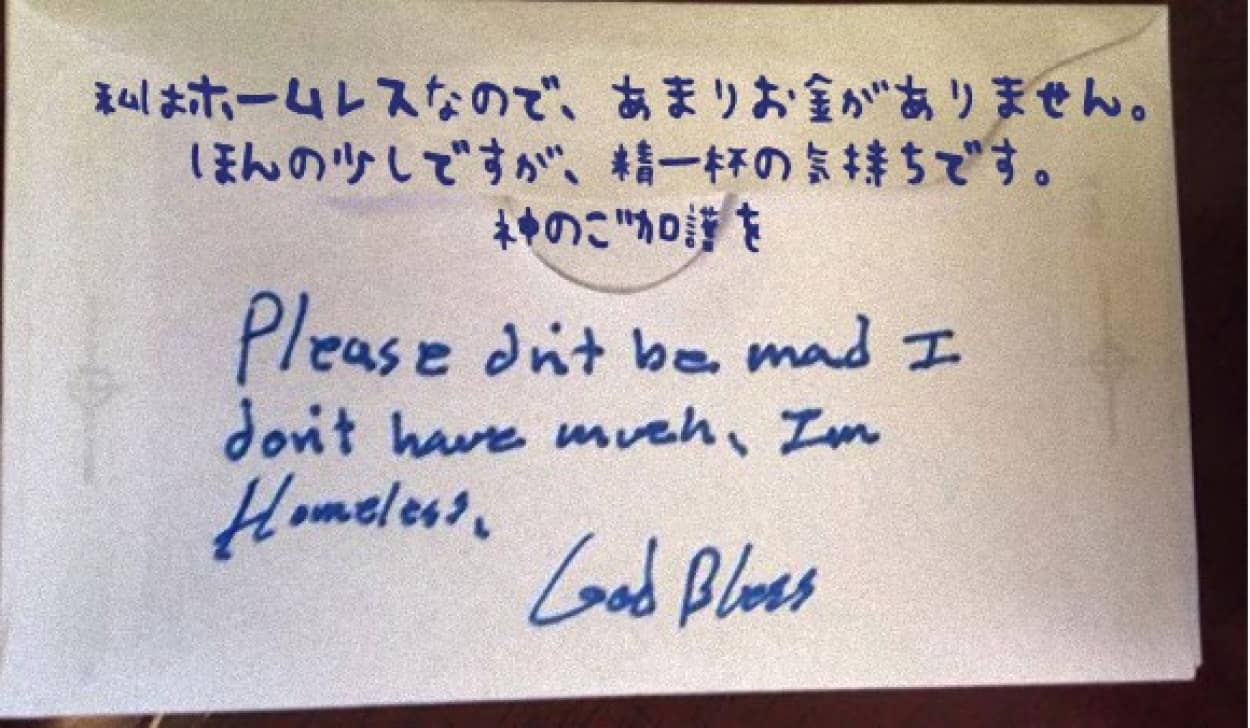 私はホームレスなので、あまりお金がありません。
ほんの少しですが、精一杯の気持ちです。
神のご加護を
Please dn't be mad I
don't have much, Im
Homeless.
God Bless